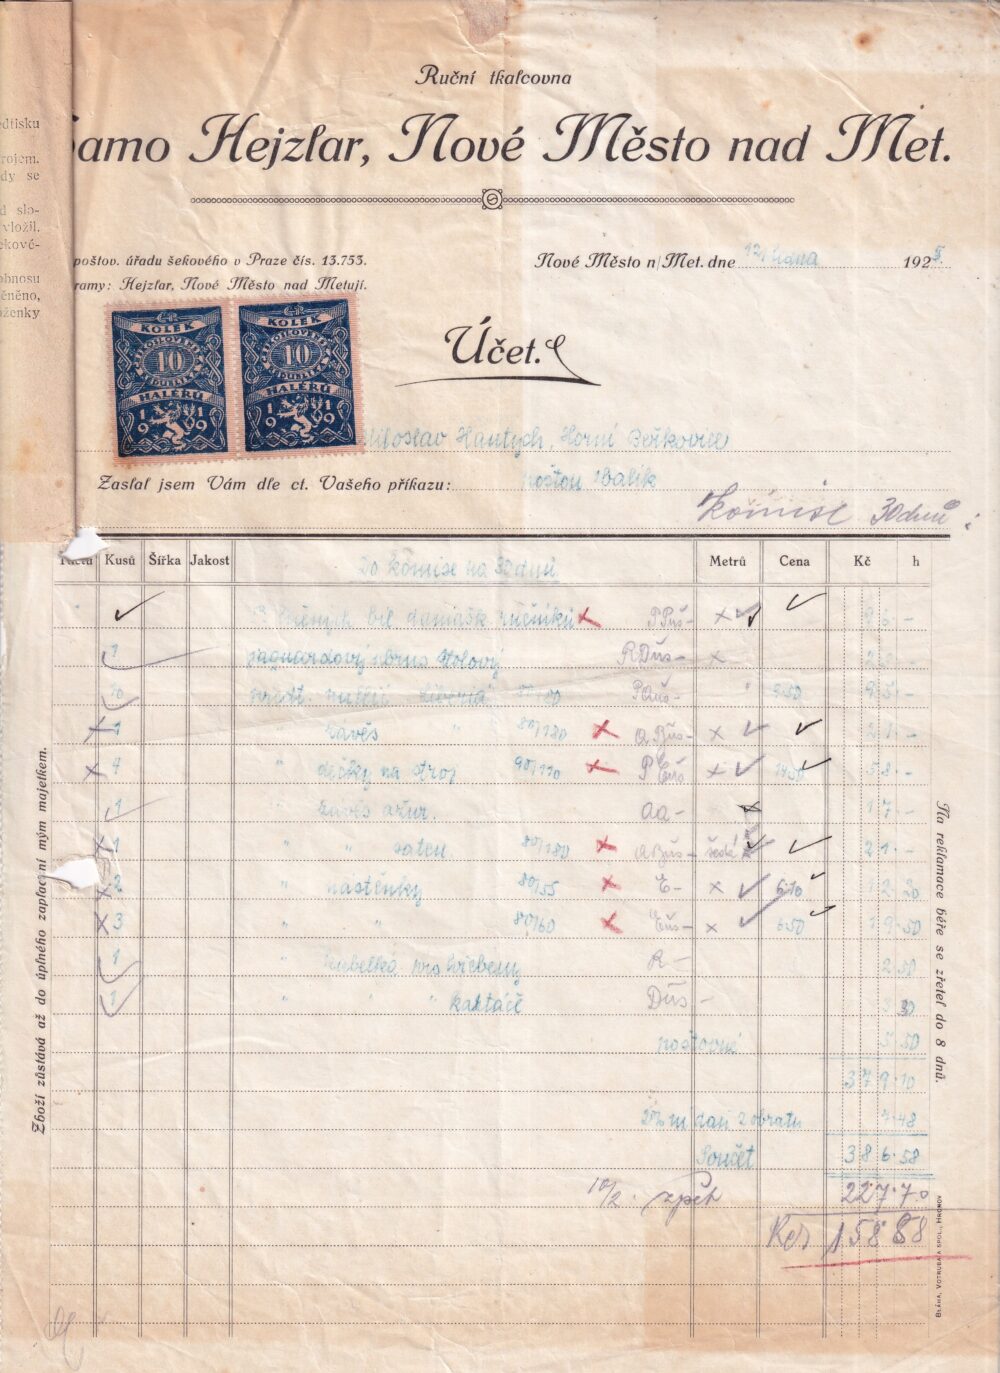 Ruční tkalcovna
Samo Hejzlar, Nové Město nad Met.
dtisku
rojem.
dy se
d slo-
vložil.
ekové-
obnosu
čněno,
oženky
poštov. úřadu šekového v Praze čís. 13.753.
ramy: Hejzlar, Nové Město nad Metují.
Nové Město n/Met. dne 12. ledna 1925.
Účet.
ČR
KOLEK
ČESKOSLOVENSKÁ
10
REPUBLIKA
HALÉŘŮ
1919
ČR
KOLEK
ČESKOSLOVENSKÁ
10
REPUBLIKA
HALÉŘŮ
1919
Miloslav Hantych, Horní Beřkovice
Zaslal jsem Vám dle ct. Vašeho příkazu: poštou balík
komise 30 dnů
Kusů Šířka Jakost Do komise na 30 dnů Metrů Cena Kč h
bíl. damašk. ručníků 96 -
1 jaquardový ubrus stolový R Důs -
10 80/180 9.50 95 -
1 " závěs " 80/180 21 -
4 " dečky na stroj 90/110 14.50 58 -
1 " závěs ažur. aa - 17 -
1 " " 80/180 šedá 21 -
2 " nástěnky 80/55 E - 6.10 12.20
3 " " 80/60 6.50 19.50
1 " kubelka pro hřebeny R - 2.50
1 " " " kartáče Důs - 3.30
poštovné 5.50
379.10
2% daň z obratu 7.48
Součet 386.58
10/2. zpět 227.70
Kčs 158 88
Zboží zůstává až do úplného zaplacení mým majetkem.
Na reklamace béře se zřetel do 8 dnů.
BLÁHA, VOTRUBA A SPOL., HRONOV